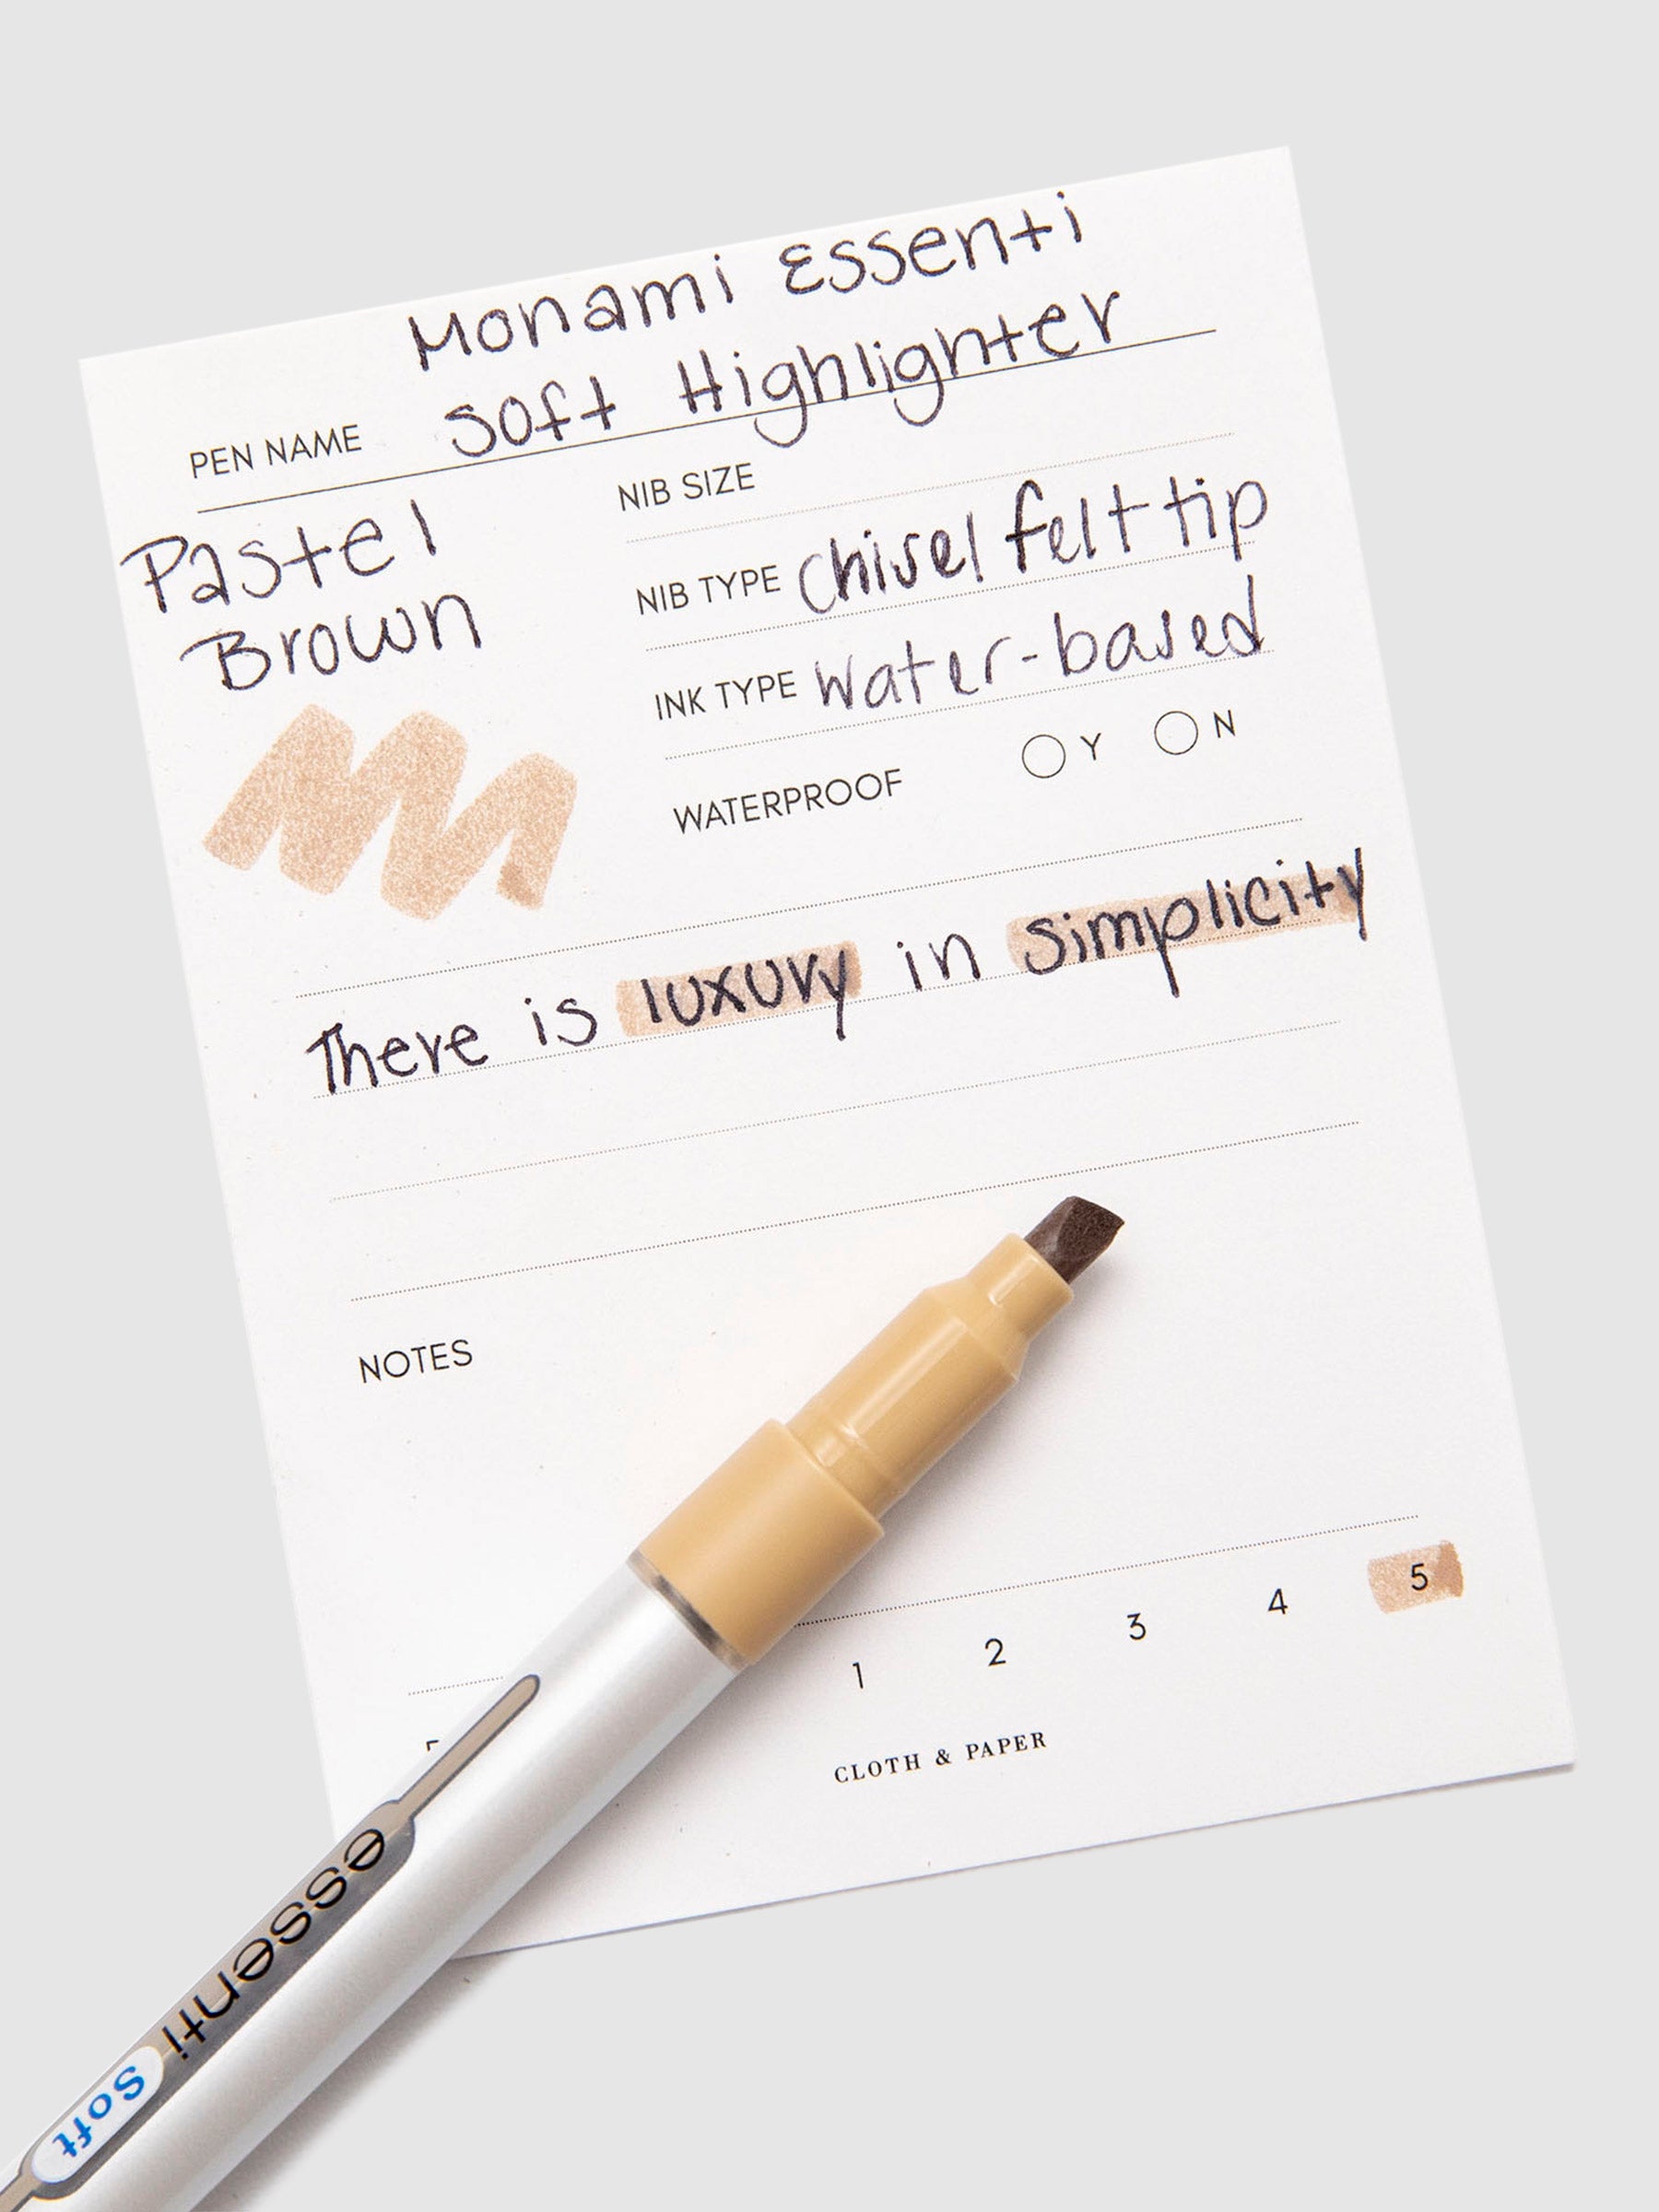 Monami Essenti
PEN NAME Soft Highlighter
Pastel
Brown
NIB SIZE
NIB TYPE chisel felt tip
INK TYPE water-based
WATERPROOF Y N
There is luxury in simplicity
NOTES
1 2 3 4 5
CLOTH & PAPER
essenti Soft